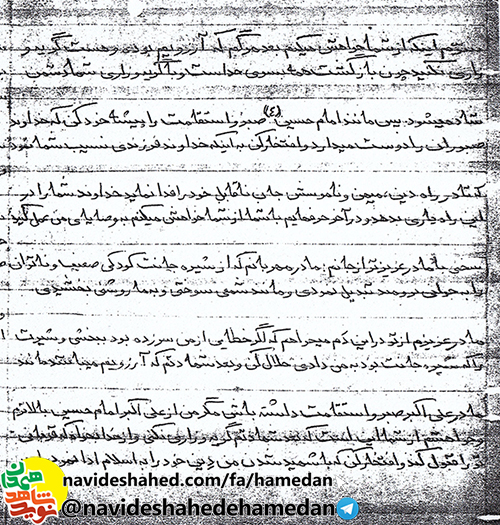 هستم اینکه از شما خواهش میکنم بعد مرگم که آرزویم بوده و هست گریه و
زاری نکنید چون بازگشت همه بسوی خداست و با گریه و زاری شما دشمن
شاد میشود پس مانند امام حسین (ع) صبر و استقامت را پیشه خود کنی که خداوند
صبوران را دوست میدارد و افتخار کن به اینکه خداوند فرزندی نصیب شما نمود
که تا در راه دین، میهن و ناموستش جان ناقابل خود را فدا نماید خداوند شما را در
این راه یاری بدهد و در آخر حرفهایم با شما از شما خواهش میکنم به وصایای من عمل کنید
سخنی با مادر عزیزتر از جانم: مادر مهربانم که از شیره جانت کودکی ضعیف و ناتوان
را به جوانی برومند تبدیل نمودی و مانند شمعی سوختی و بما روشنی بخشیدی
مادر عزیزم از تو در این دم میخواهم که اگر خطایی از من سرزده بود ببخشی و شیرت
را که شیره جانت بود به من دادی حلال کن و بعد شهادتم که آرزویم میباشد مانند
مادر علی اکبر صبر و استقامت داشته باش مگر من از علی اکبر امام حسین بالاترم
و خواهشم از شما این است که بعد شهادتم گریه و زاری نکنی و از خدا بخواه که قربانی
را قبول کند و افتخار کن که با شهید شدن من دین خود را به اسلام ادا
نوید شاهد
همدان
navideshahed.com/fa/hamedan
@navideshahedehamedan